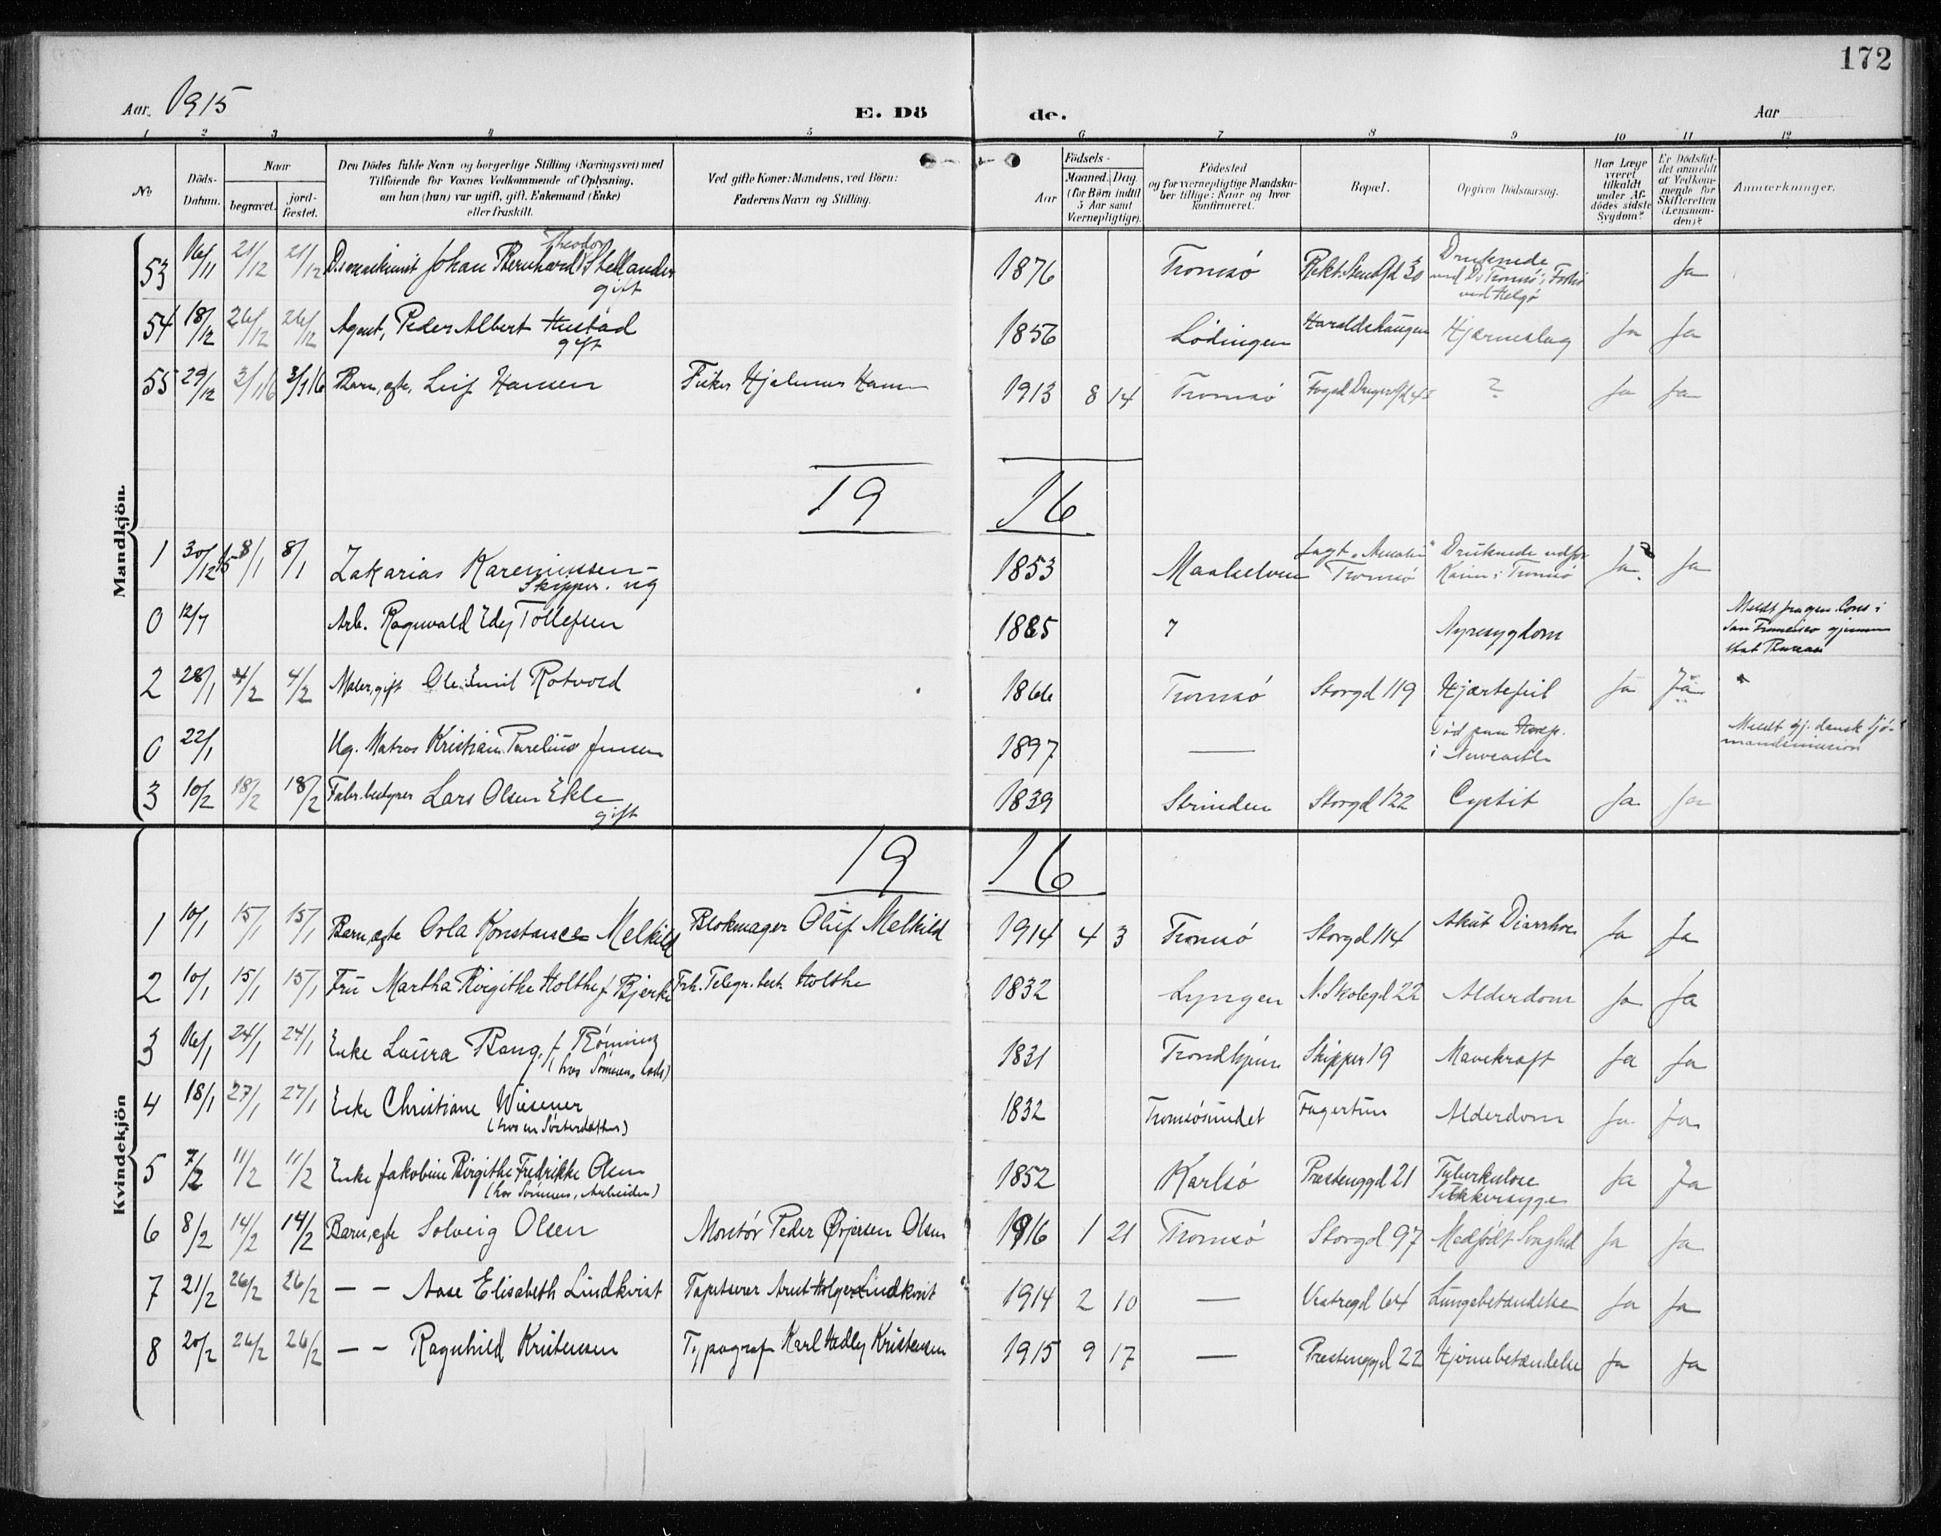 172
Aar. 1915 E. Dö de. Aar
1 2 3 4 5 6 7 8 9 10 11 12
No Döds-Datum. Naar begravet. jord-fæstet. Den Dödes fulde Navn og borgerlige Stilling (Næringsvei) med Tilföiende for Voxnes Vedkommende af Oplysning, om han (hun) var ugift, gift, Enkemand (Enke) eller fraskilt. Ved gifte Koner: Mandens, ved Börn: Faderens Navn og Stilling. Födsels- Aar Maaned. Dag (for Börn indtil 5 Aar samt Værnepligtige). Födested og for værnepligtige Mandskaber tillige: Naar og hvor konfirmeret. Bopæl. Opgiven Dödsaarsag. Har Læge været tilkaldt under Afdödes sidste Sygdom? Er Dödsfaldet anmeldt af Vedkommende for Skifteretten (Lensmanden)? Anmærkninger.
Mandkjön.
53 16/11 21/12 21/12 Johan Bernhard Theodor Stellander gift 1876 Tromsö Druknede ved Helgö Ja
54 18/12 26/12 26/12 Agent, Peder Albert Hustad gift 1856 Lödingen Haraldshaugen Hjærneslag Ja Ja
55 29/12 3/1 16 3/1 16 Barn, egte, Leif Hansen Fisker Hjalmar Hansen 1913 8 14 Tromsö ? Ja Ja
19 16
1 30/12 15 8/1 8/1 Zakarias Kareniussen - Skipper. ug 1853 Maalselven Tromsö Druknede i Tromsö Ja Ja
0 12/7 Arb. Ragnvald Edej Tollefsen 1885 ? Nyresygdom San Francisco gjennem Stat. Bureau
2 28/1 4/2 4/2 Maler, gift Ole Emil Rotvold 1866 Tromsö Storgd 119 Hjærtefeil Ja Ja
0 22/1 Ug. Matros Kristian Parelius Jensen 1897 — Död paa Hosp. i Newcastle Meldt gj. dansk sjömandsmission
3 10/2 18/2 18/2 Fabr. bestyrer Lars Olsen Ekle gift 1839 Strinden Storgd 122 Cystit Ja Ja
Kvindekjön
19 16
1 10/1 15/1 15/1 Barn, egte Orla Konstance Melkild Blokmager Oluf Melkild 1914 4 3 Tromsö Storgd 114 Akut Diarrhoe Ja Ja
2 10/1 15/1 15/1 Fru Martha Birgithe Holthe f. Bjerke Frh. Telegr. best. Holthe 1832 Lyngen N. Skolegd 22 Alderdom Ja Ja
3 16/1 24/1 24/1 Enke Laura Bang, f. Rönning 1831 Trondhjem Skipper 19 Mavekræft Ja Ja
4 18/1 27/1 27/1 Enke Christiane Wiesener (hos en Søsterdatter) 1832 Tromsösundet Fagertun Alderdom Ja Ja
5 7/2 11/2 11/2 Enke Jakobine Birgithe Fredrikke Olsen (hos Sönnen, Arbeider) 1852 Karlsö Prestenggd 21 Tuberkulose Sukkersyge Ja Ja
6 8/2 14/2 14/2 Barn, egte Solveig Olsen Montör Peder Ørjersen Olsen 1916 1 21 Tromsö Storgd 97 Medfödt Svaghed Ja Ja
7 21/2 26/2 26/2 — — Aase Elisabeth Lindkvist Tapetserer Arnt Holger Lindkvist 1914 2 10 — Vestregd 64 Lungebetændelse Ja Ja
8 20/2 26/2 26/2 — — Ragnhild Kristensen Typograf Karl Hadley Kristensen 1915 9 17 — Prestenggd 22 Hjernebetændelse Ja Ja